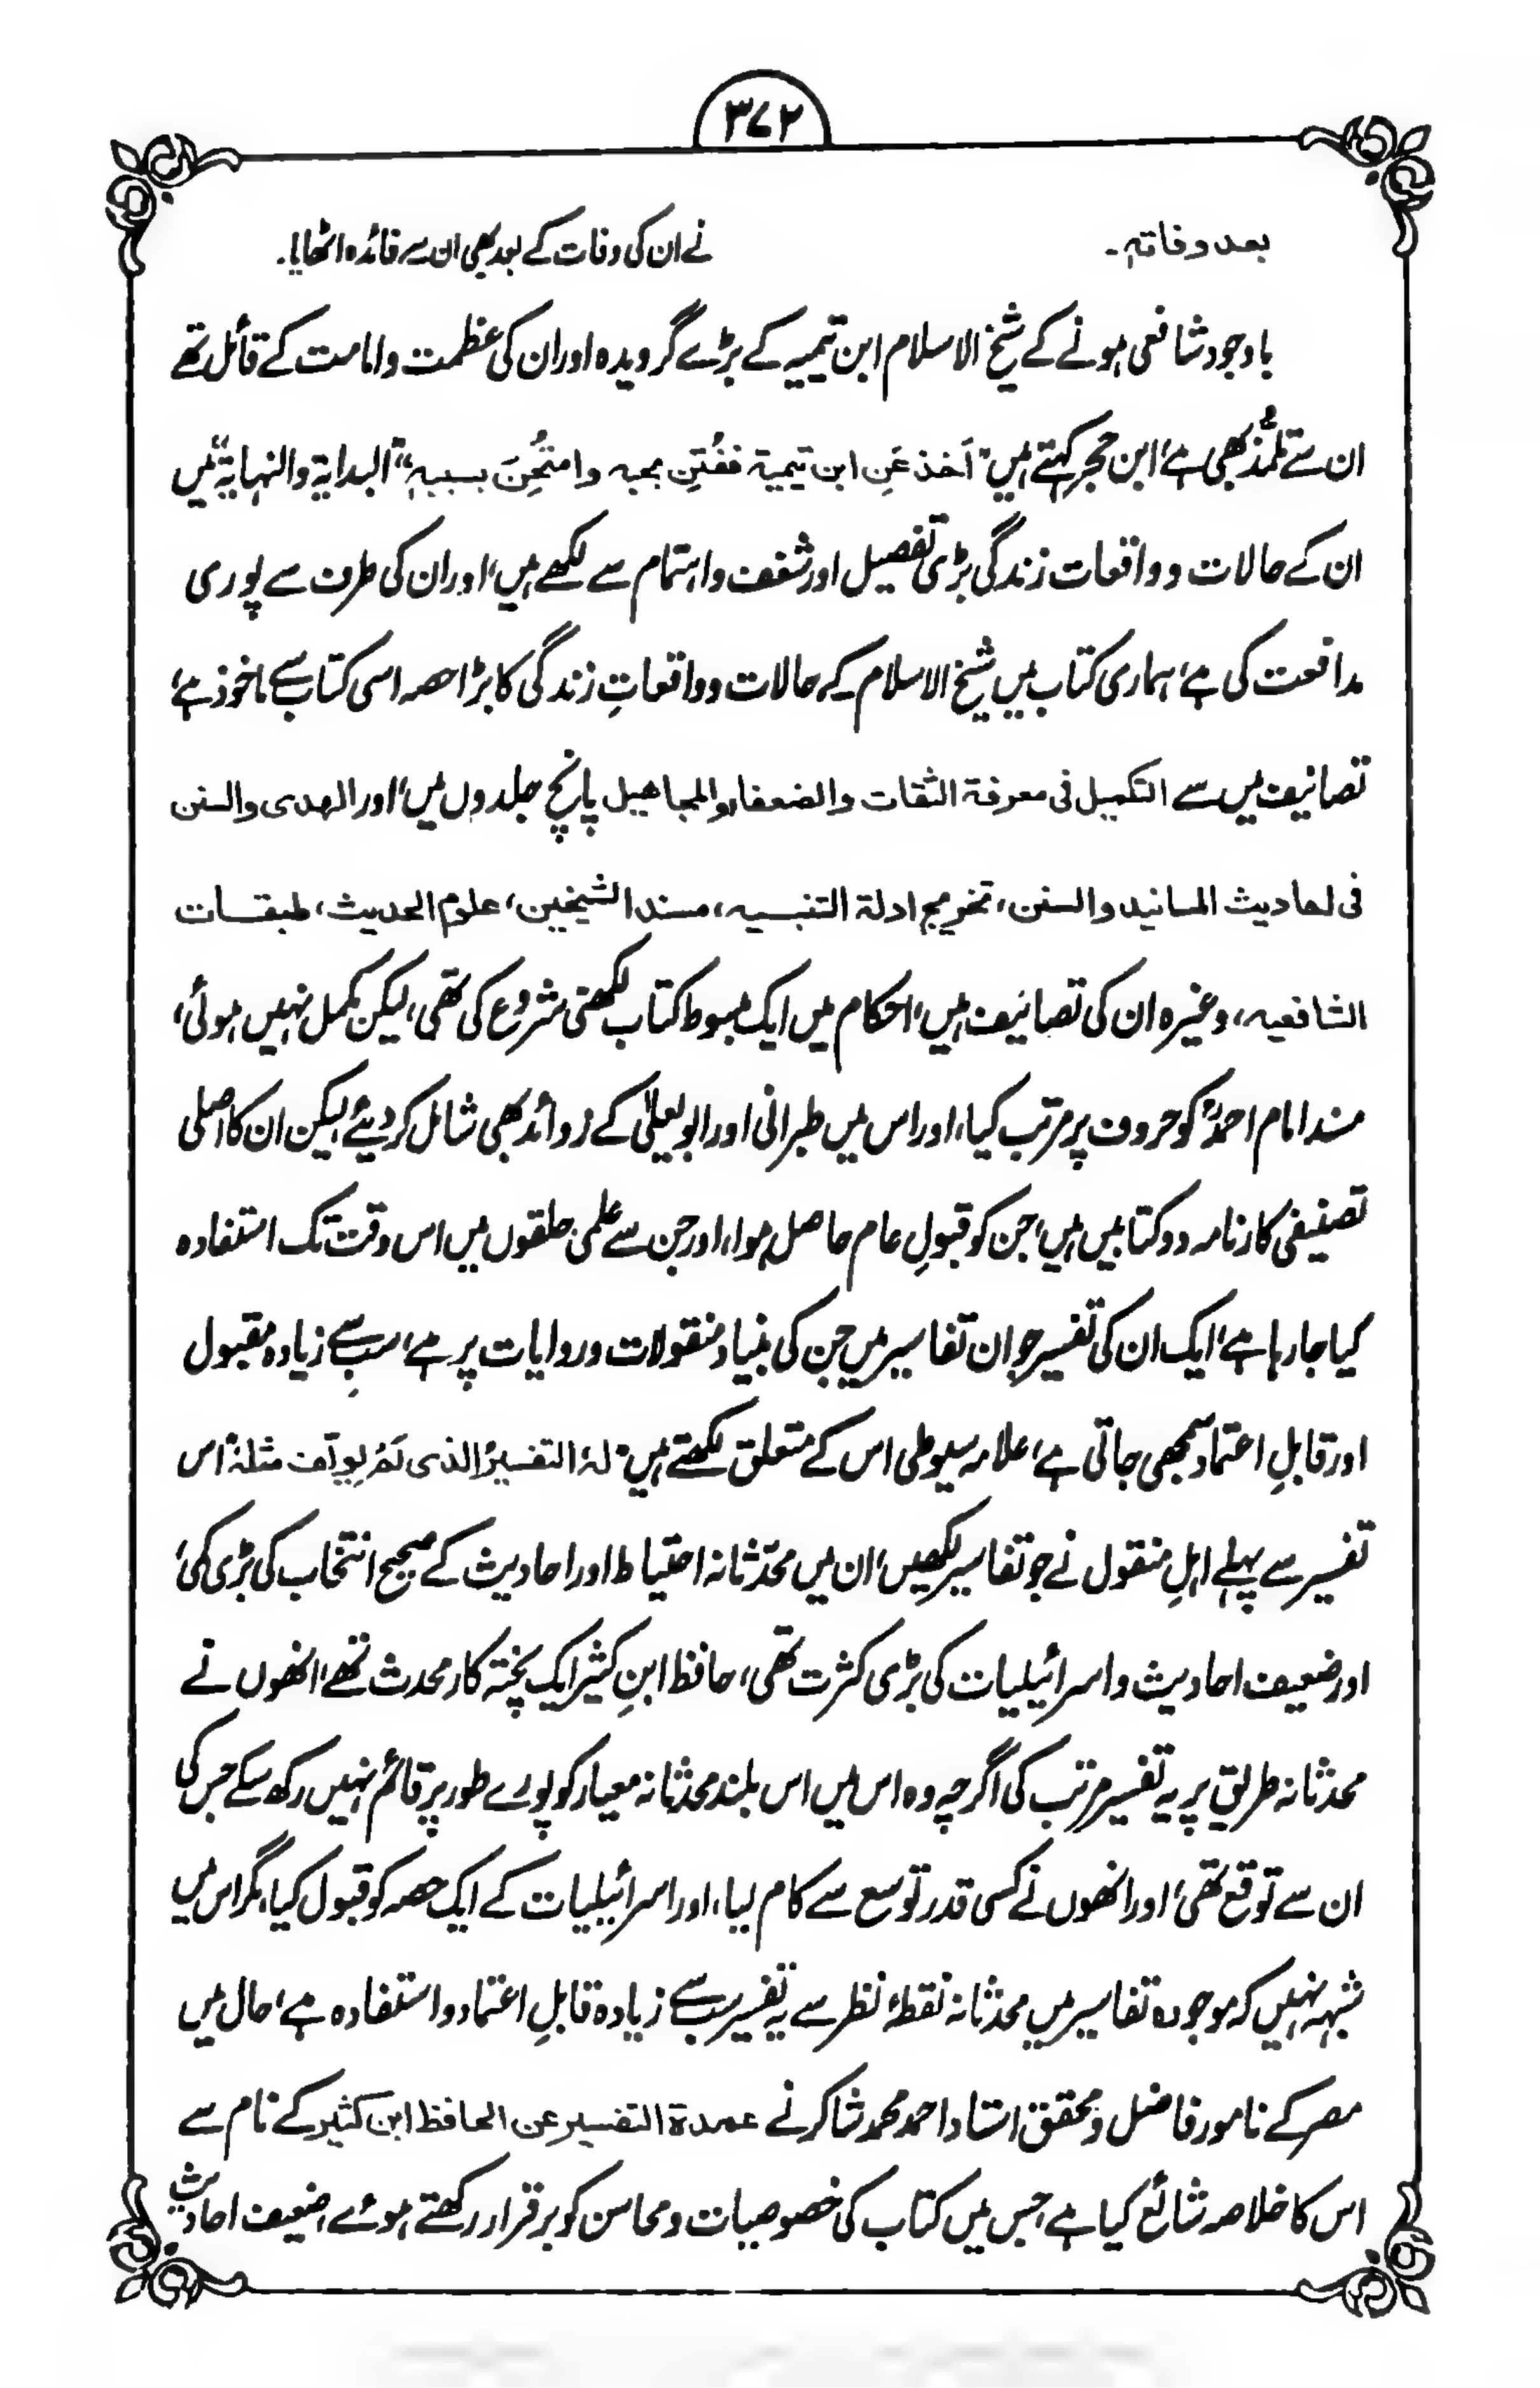 ۳۷۲
بعد وفاتہ۔ نے ان کی وفات کے بعد بھی ان سے فائدہ اٹھایا۔
باوجود شافعی ہونے کے شیخ الاسلام ابن تیمیہ کے بڑے گرویدہ اور ان کی عظمت و امامت کے قائل تھے
ان سے تلمّذ بھی ہے، ابن حجر کہتے ہیں "اَخذ عَنِ ابن تیمیۃ ففُتِن بحبہ وامتُحِنَ بسببہٖ" "البدایۃ والنہایۃ" میں
ان کے حالات و واقعات زندگی بڑی تفصیل اور شغف و اہتمام سے لکھے ہیں، اور ان کی طرف سے پوری
مدافعت کی ہے، ہماری کتاب میں شیخ الاسلام کے حالات و واقعاتِ زندگی کا بڑا حصہ اسی کتاب سے ماخوذ ہے،
تصانیف میں سے التکمیل فی معرفۃ الثقات والضعفاء والمجاھیل پانچ جلدوں میں، اور الھدی والسنن
فی احادیث المسانید والسنن، تخریج ادلۃ التنبیہ، مسند الشیخین، علوم الحدیث، طبقات
الشافعیہ، وغیرہ ان کی تصانیف ہیں، احکام میں ایک مبسوط کتاب لکھنی شروع کی تھی، لیکن مکمل نہیں ہوئی،
مسند امام احمدؒ کو حروف پر مرتب کیا، اور اس میں طبرانی اور ابو یعلیٰ کے زوائد بھی شامل کر دیئے، لیکن ان کا اصلی
تصنیفی کارنامہ دو کتابیں ہیں، جن کو قبولِ عام حاصل ہوا، اور جن سے علمی حلقوں میں اس وقت تک استفادہ
کیا جا رہا ہے، ایک ان کی تفسیر جو ان تفاسیر میں جن کی بنیاد منقولات و روایات پر ہے، سب سے زیادہ مقبول
اور قابلِ اعتماد سمجھی جاتی ہے، علامہ سیوطی اس کے متعلق لکھتے ہیں "لہٗ التفسیرُ الذی لَمْ یولّف مثلہٗ" اس
تفسیر سے پہلے اہلِ منقول نے جو تفاسیر لکھیں، ان میں محدّثانہ احتیاط اور احادیث کے صحیح انتخاب کی بڑی کمی،
اور ضعیف احادیث و اسرائیلیات کی بڑی کثرت تھی، حافظ ابنِ کثیر ایک پختہ کار محدث تھے، انھوں نے
محدثانہ طریق پر یہ تفسیر مرتب کی اگرچہ وہ اس میں اس بلند محدثانہ معیار کو پورے طور پر قائم نہیں رکھ سکے جس کی
ان سے توقع تھی، اور انھوں نے کسی قدر توسع سے کام لیا، اور اسرائیلیات کے ایک حصہ کو قبول کیا، مگر اس میں
شبہہ نہیں کہ موجودہ تفاسیر میں محدثانہ نقطۂ نظر سے یہ تفسیر سب سے زیادہ قابلِ اعتماد و استفادہ ہے، حال میں
مصر کے نامور فاضل و محقق استاد احمد محمد شاکر نے عمدۃ التفسیر عن الحافظ ابن کثیر کے نام سے
اس کا خلاصہ شائع کیا ہے جس میں کتاب کی خصوصیات و محاسن کو برقرار رکھتے ہوئے، ضعیف احادیث